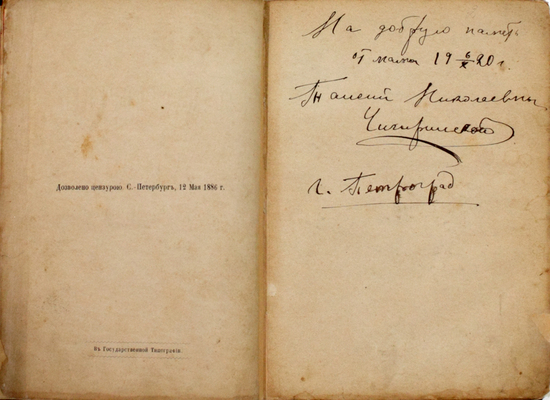 Дозволено цензурою. С.-Петербургъ, 12 Мая 1886 г.
Въ Государственной Типографіи.
На добрую память
от мамы 19 6/X 20 г.
Николаевны
Чигиринской
г. Петроград